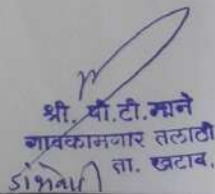 श्री. पी.टी.माने
गावकामगार तलाठी
ता. खटाव.